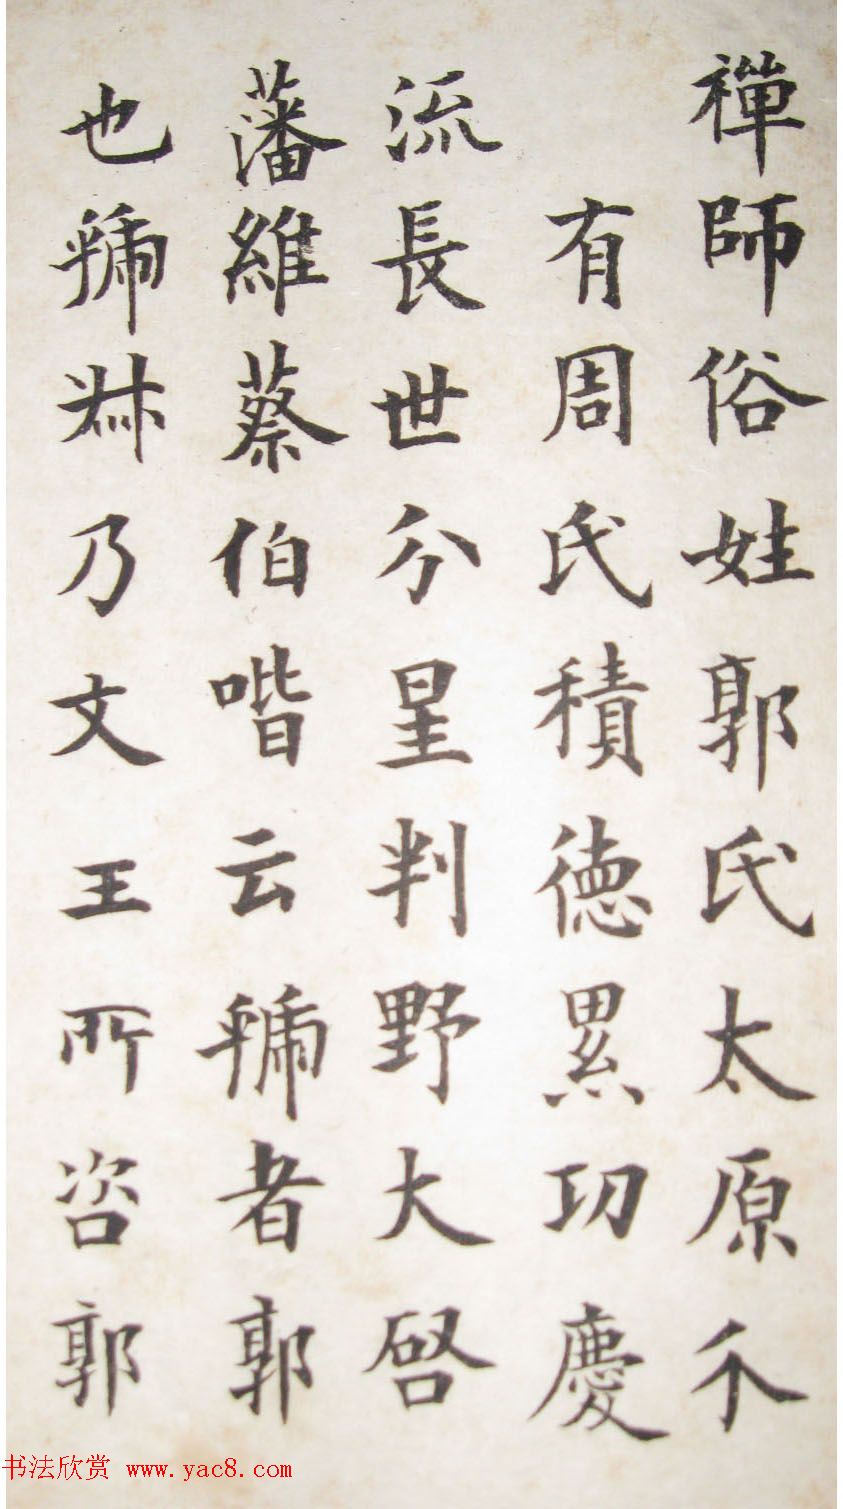 禪師俗姓郭氏太原介
有周氏積德累功慶
流長世分星判野大啓
藩維蔡伯喈云虢者郭
也虢叔乃文王所咨郭
书法欣赏 www.yac8.com